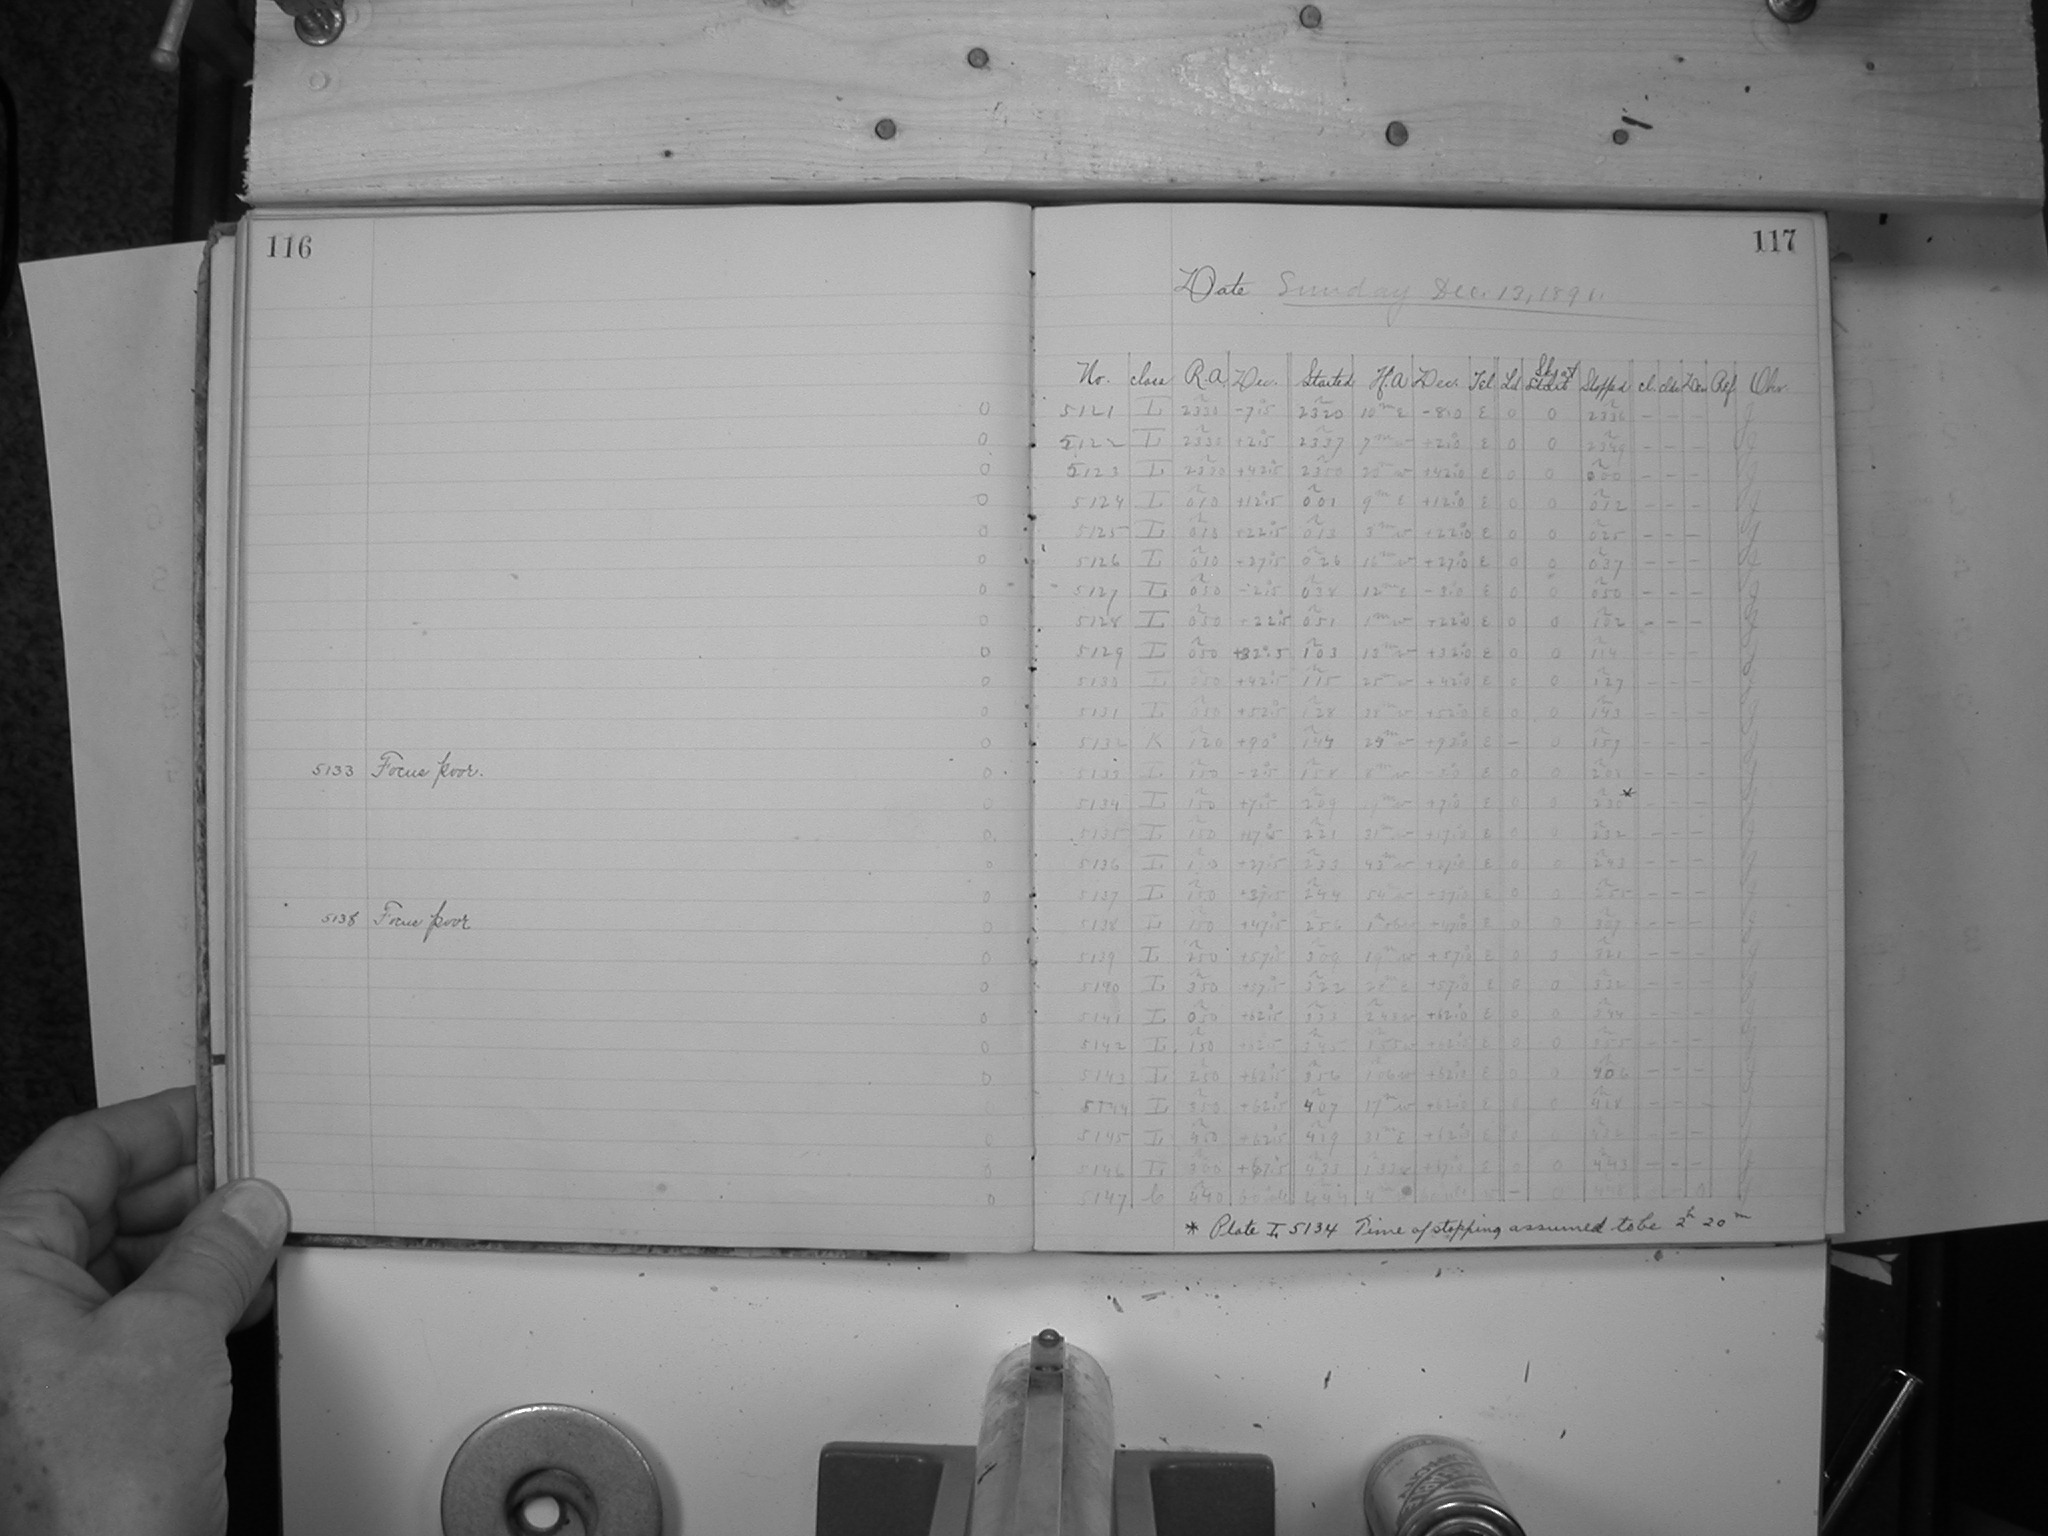 116
5133 Focus poor.
5138 Focus poor
117
Date Sunday Dec. 13, 1891.
No. class R.A. Dec. Started H.A Dec. Tel Ld Stopped cl. Dev Ref Obs.
5121 L 2330 -7°.5 2320 10m E -8°.0 E 0 0 2336 - - -
5122 L 2330 +2°.5 2337 7m w +2°.0 E 0 0 2349 - - -
5123 L 2330 +42°.5 2350 20m w +42°.0 E 0 0 000 - - -
5124 L 010 +12°.5 001 9m E +12°.0 E 0 0 012 - - -
5125 L 010 +22°.5 013 3m w +22°.0 E 0 0 025 - - -
5126 L 010 +27°.5 026 16m w +27°.0 E 0 0 037 - - -
5127 L 050 -2°.5 038 12m E -3°.0 E 0 0 050 - - -
5128 L 050 +22°.5 051 1m w +22°.0 E 0 0 102 - - -
5129 L 050 +32°.5 103 13m w +32°.0 E 0 0 114 - - -
5130 L 050 +42°.5 115 25m w +42°.0 E 0 0 127 - - -
5131 L 050 +52°.5 128 38m w +52°.0 E 0 0 143 - - -
5132 K 120 +90° 144 24m w E - 0 157 - - -
5133 L 150 -2°.5 158 8m w -3°.0 E 0 0 208 - - -
5134 L 150 +7°.5 209 19m w +7°.0 E 0 0 * - - -
5135 L 150 +17°.5 221 31m w +17°.0 E 0 0 232 - - -
5136 L 150 +27°.5 233 43m w +27°.0 E 0 0 243 - - -
5137 L 150 +37°.5 244 54m w +37°.0 E 0 0 255 - - -
5138 L 150 +47°.5 256 +47°.0 E 0 0 307 - - -
5139 L 250 +57°.5 309 19m w +57°.0 E 0 0 321 - - -
5140 L 350 +57°.5 322 28m E +57°.0 E 0 0 332 - - -
5141 L 050 +62°.5 333 243w +62°.0 E 0 0 344 - - -
5142 L 150 +62°.5 345 155w +62°.0 E 0 0 355 - - -
5143 L 250 +62°.5 356 106w +62°.0 E 0 0 406 - - -
5144 L 350 +62°.5 407 17m w +62°.0 E 0 0 418 - - -
5145 L 450 +62°.5 419 31m E +62°.0 E 0 0 432 - - -
5146 L 300 +67°.5 433 133w +67°.0 E 0 0 443 - - -
5147 440 444 4m - 0
* Plate L 5134 Time of stopping assumed to be 2h 20m